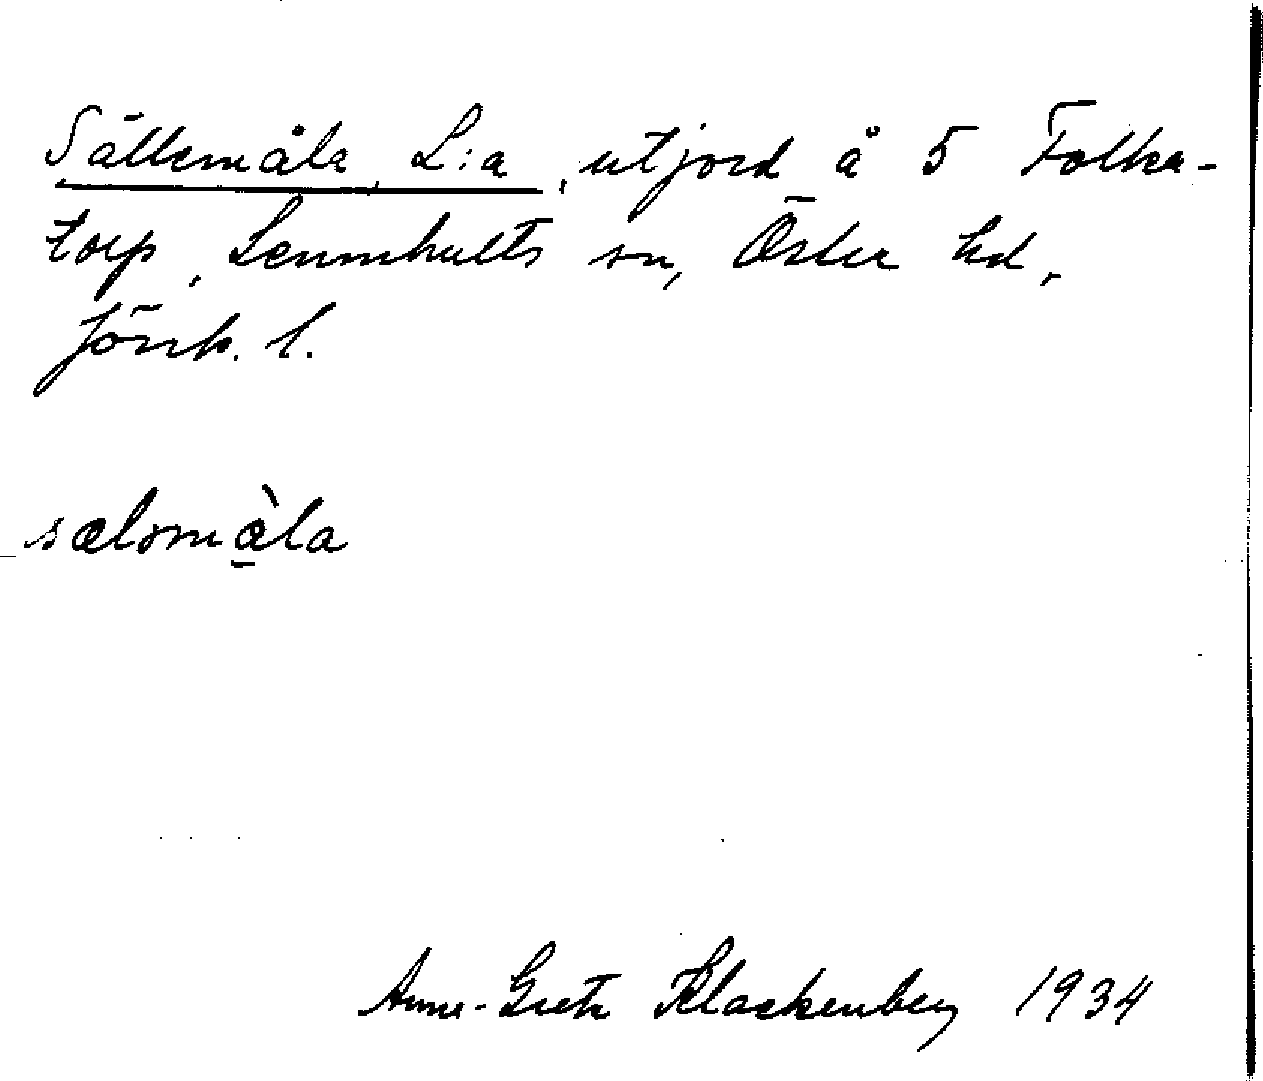 Sällemåla, L:a, utjord å 5 Folka-
torp, Lemnhults sn, Öster hd,
Jönk. l.
sælomåla
Anna-Greta Klackenberg 1934